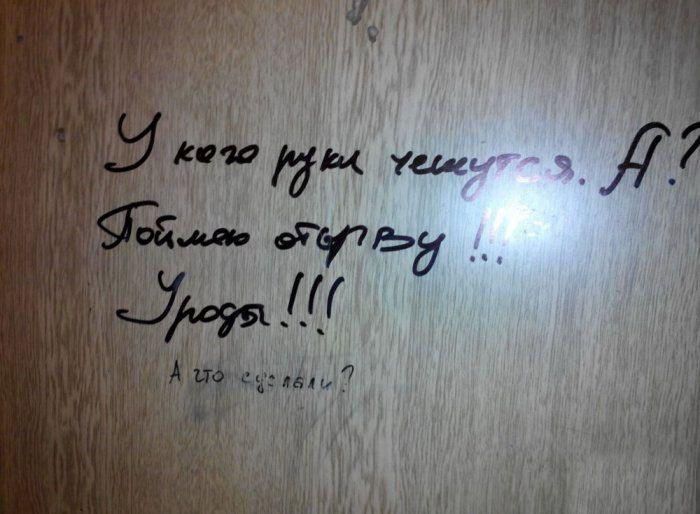 У кого руки чешутся. А?
Поймаю оторву!!!
Уроды!!!
А что сделали?